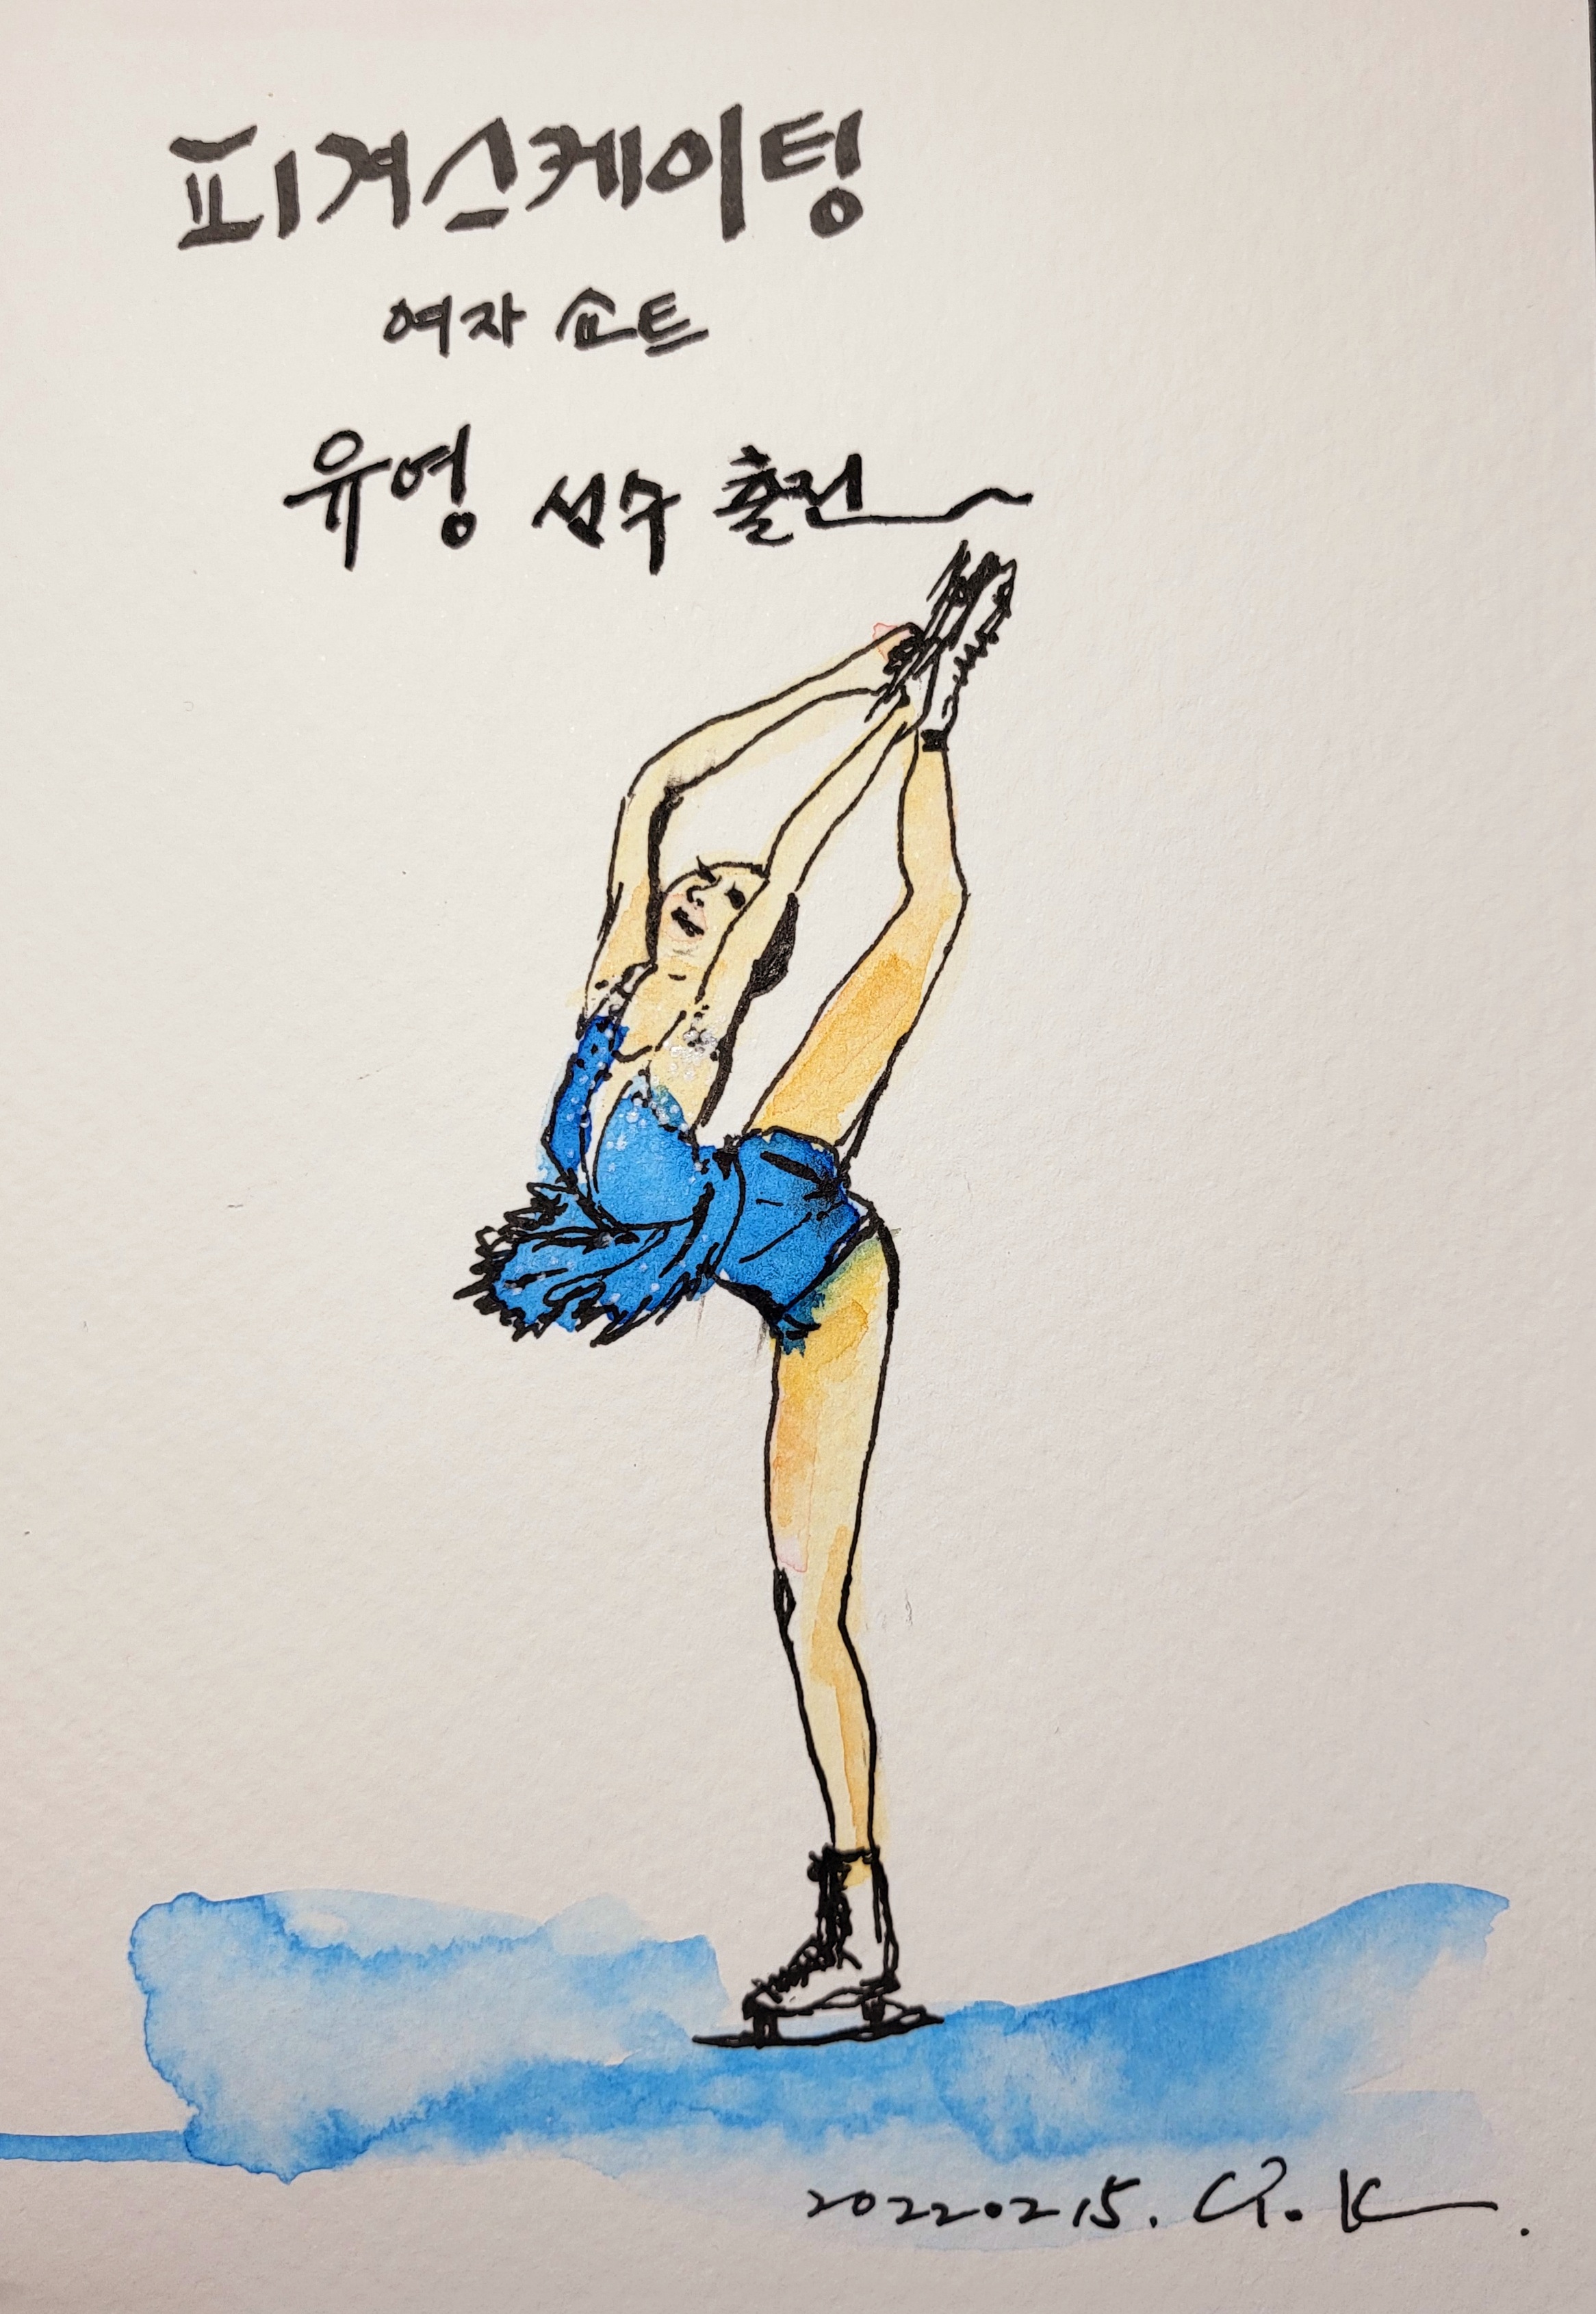 피겨스케이팅
여자 쇼트
유영 선수 출전
2022.02.15.